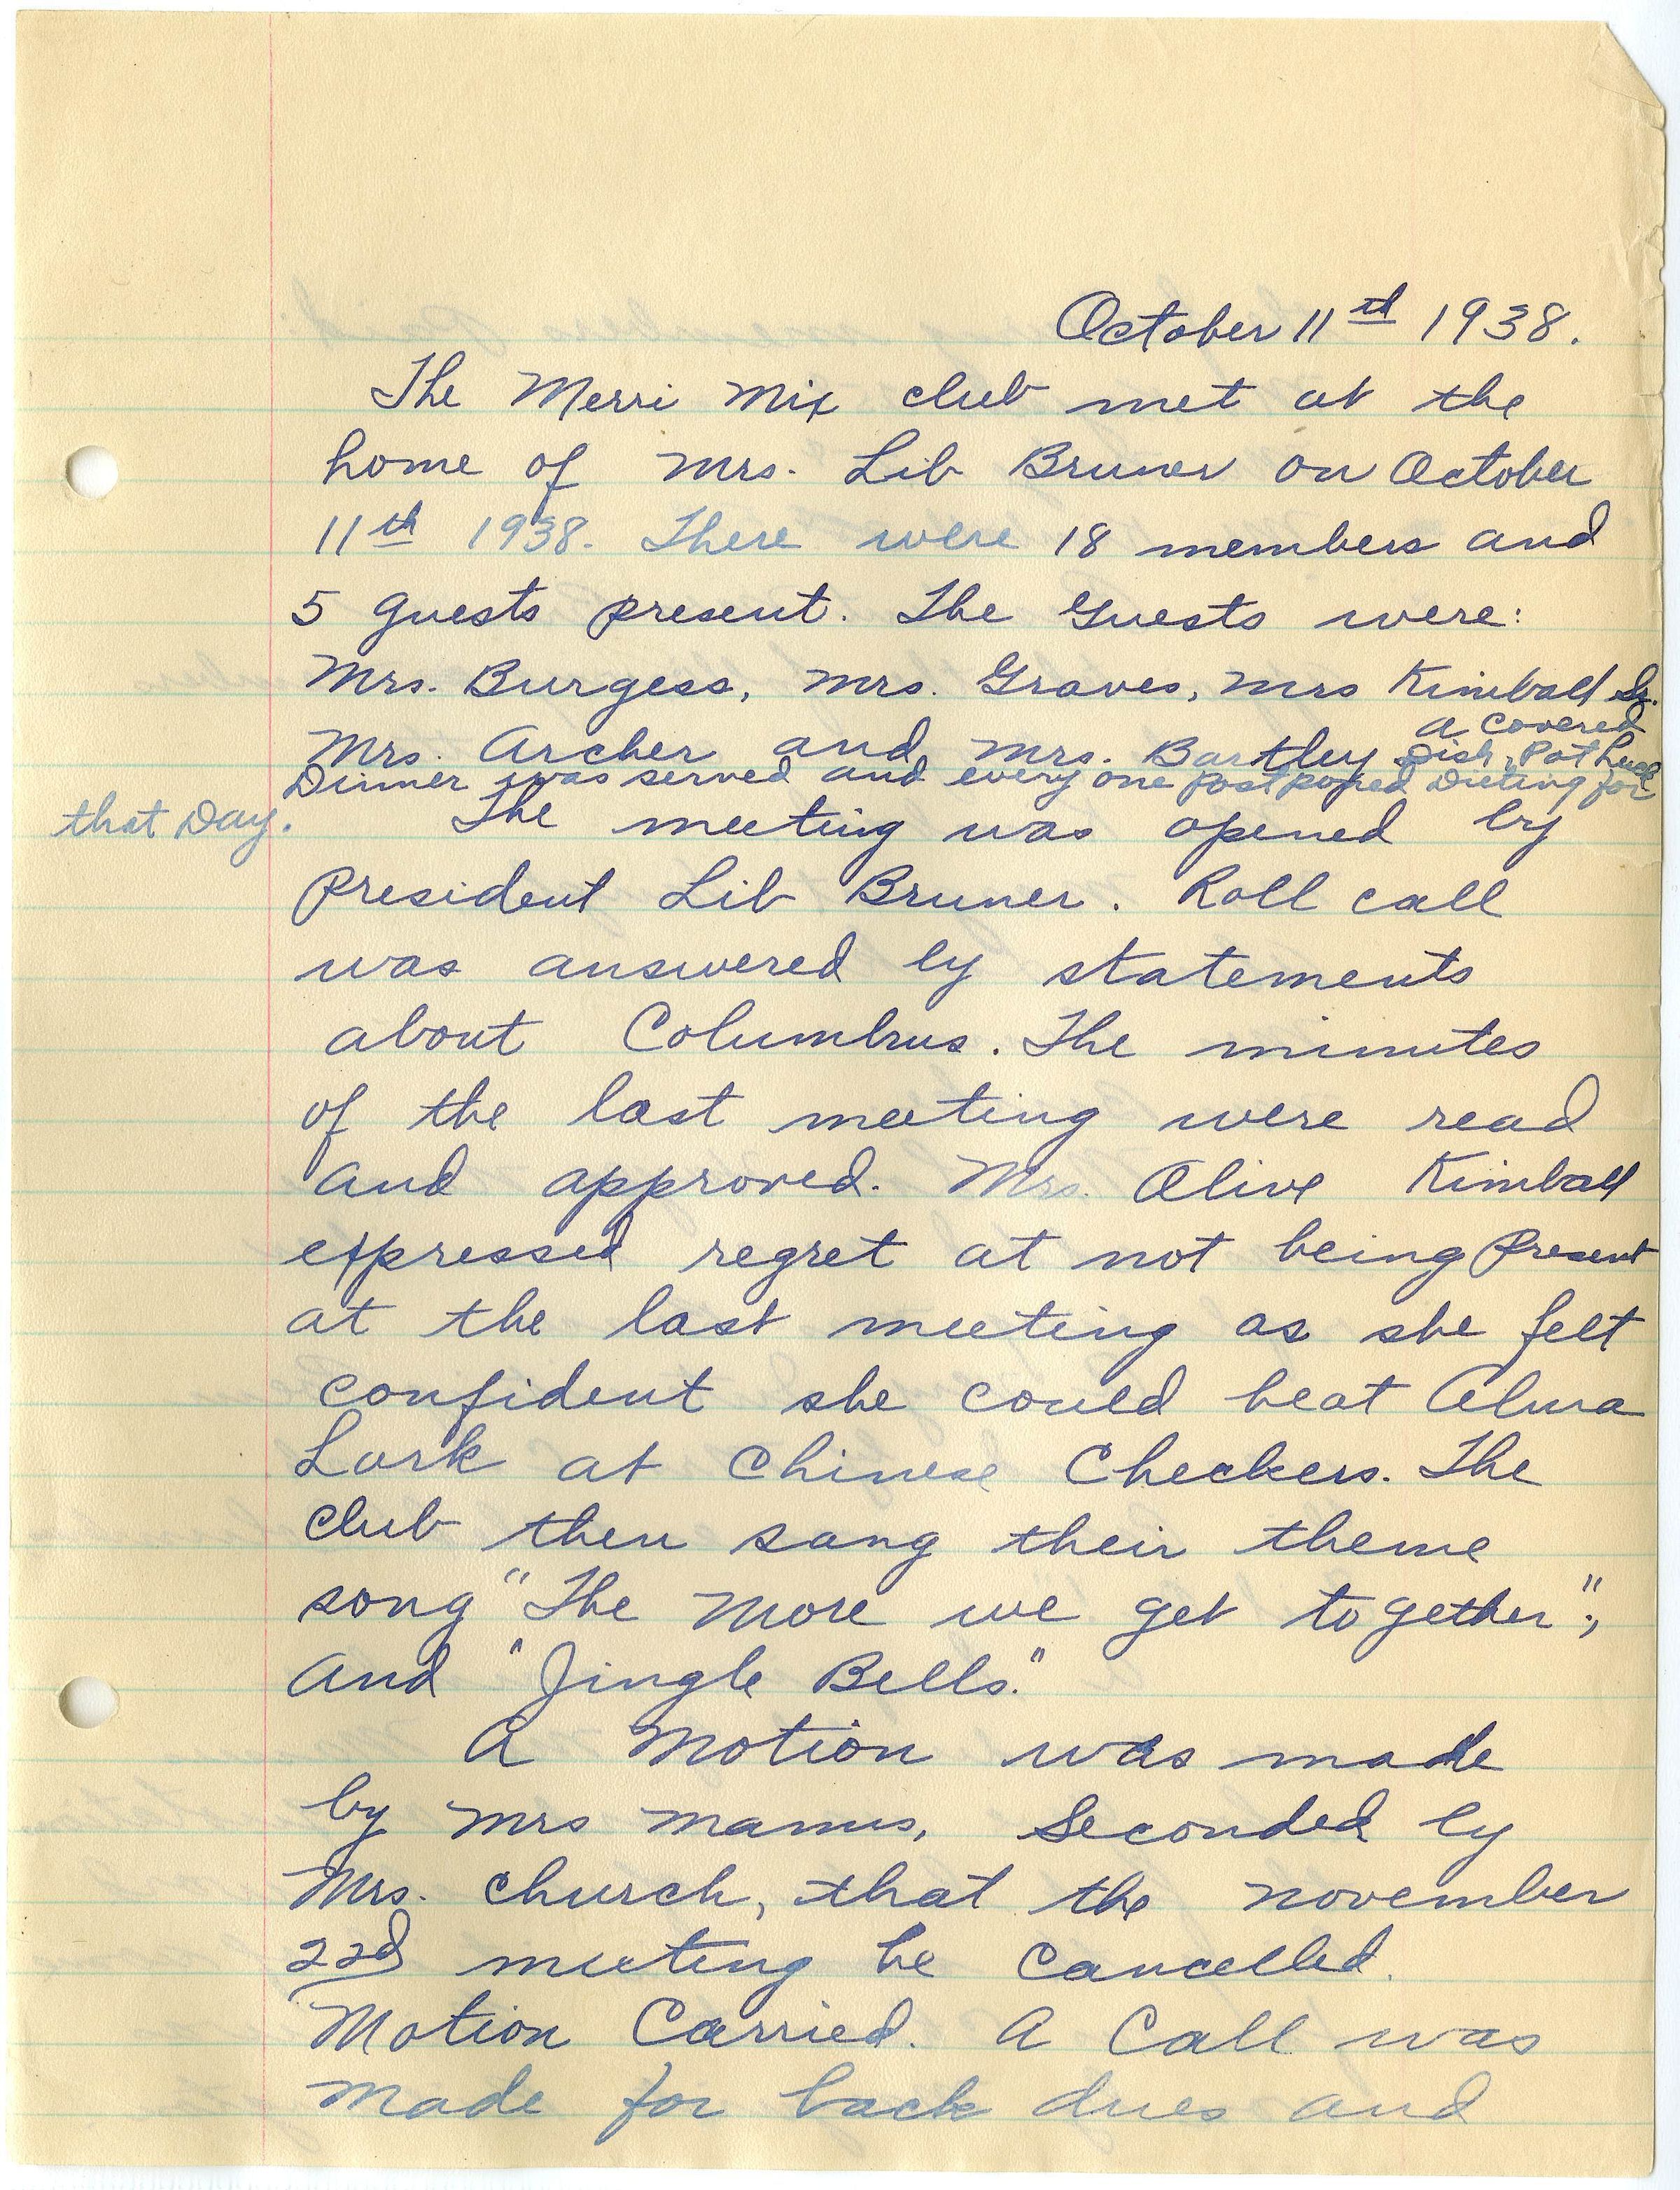 October 11th 1938.
The Merri Mix club met at the
home of Mrs. Lib Bruner on October
11th 1938. There were 18 members and
5 guests present. The Guests were:
Mrs. Burgess, Mrs. Graves, Mrs Kimball Sr.
Mrs. Archer and Mrs. Bartley A Covered Dish, Pot Luck
Dinner was served and every one postponed Dieting for
that Day.
The meeting was opened by
President Lib Bruner. Roll call
was answered by statements
about Columbus. The minutes
of the last meeting were read
and approved. Mrs. Olive Kimball
expressed regret at not being present
at the last meeting as she felt
confident she could beat Alma
Lark at Chinese Checkers. The
club then sang their theme
song "The More we get together";
and "Jingle Bells."
A Motion was made
by Mrs Manus, Seconded by
Mrs. Church, that the November
22d meeting be Cancelled.
Motion Carried. A Call was
made for back dues and